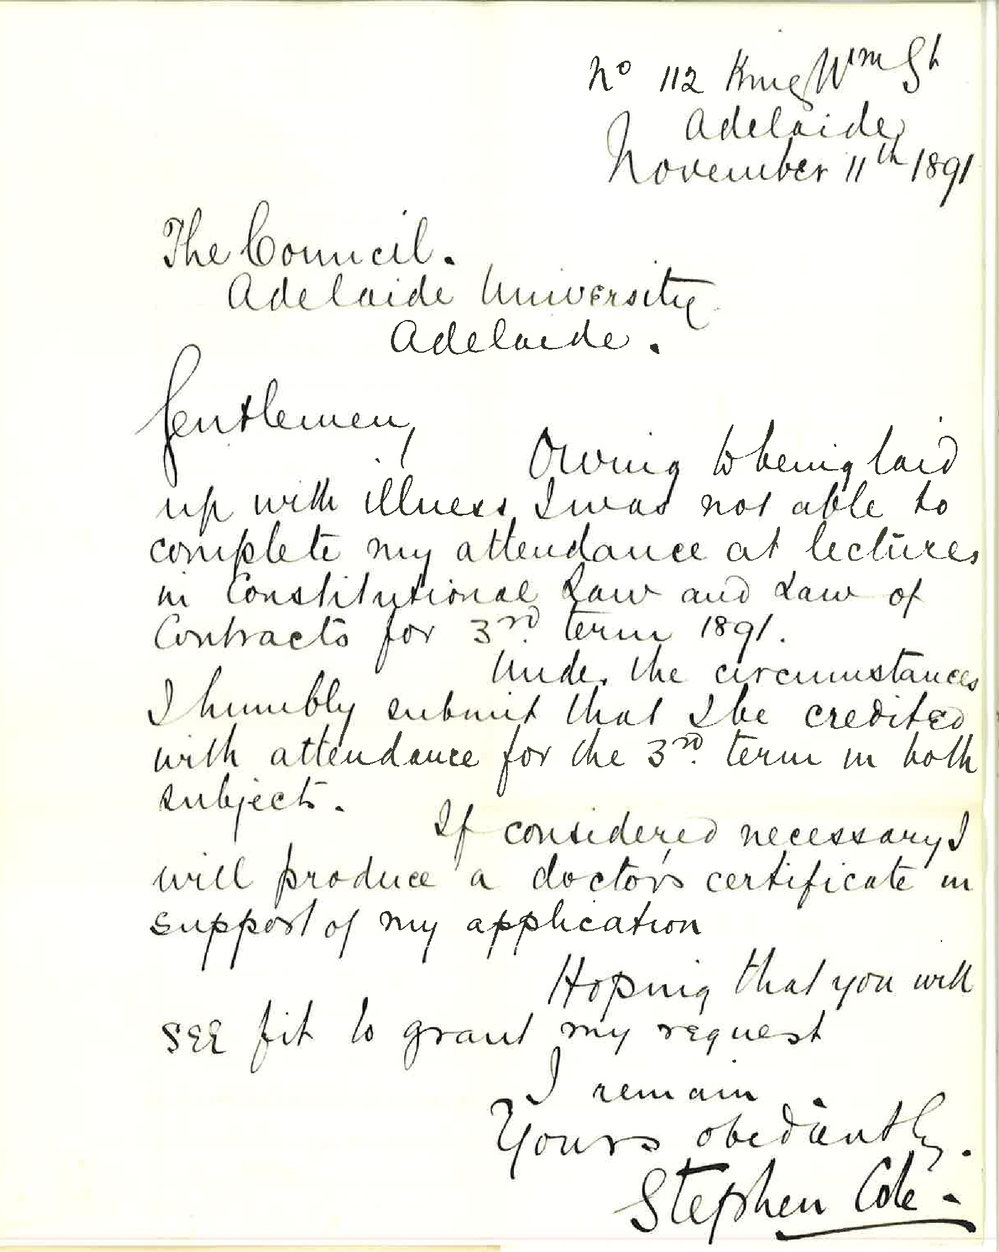 No 112 King Wm St
Adelaide
November 11th 1891
The Council.
Adelaide University
Adelaide.
Gentlemen,
Owing to being laid
up with illness I was not able to
complete my attendance at lectures
in Constitutional Law and Law of
Contracts for 3rd term 1891.
Under the circumstances
I humbly submit that I be credited
with attendance for the 3rd term in both
subjects.
If considered necessary I
will produce a doctor's certificate in
support of my application
Hoping that you will
see fit to grant my request
I remain
Yours obediantly.
Stephen Cole.